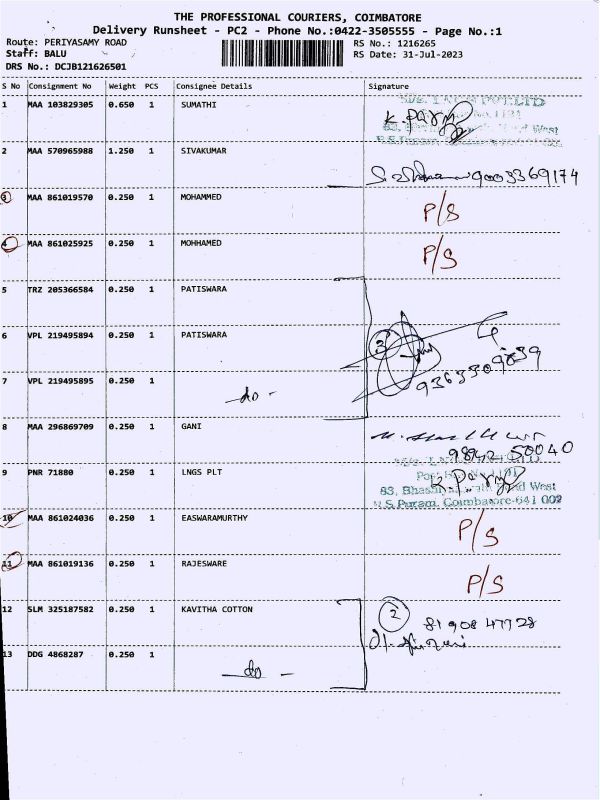 THE PROFESSIONAL COURIERS, COIMBATORE
Delivery Runsheet - PC2 - Phone No.:0422-3505555 - Page No.:1
Route: PERIYASAMY ROAD RS No.: 1216265
Staff: BALU RS Date: 31-Jul-2023
DRS No.: DCJB121626501
S No Consignment No Weight PCS Consignee Details Signature
1 MAA 103829305 0.650 1 SUMATHI
2 MAA 570965988 1.250 1 SIVAKUMAR
9003369174
3 MAA 861019570 0.250 1 MOHAMMED P/S
4 MAA 861025925 0.250 1 MOHHAMED P/S
5 TRZ 205366584 0.250 1 PATISWARA
6 VPL 219495894 0.250 1 PATISWARA 3
9363309839
7 VPL 219495895 0.250 1 -do-
8 MAA 296869709 0.250 1 GANI
50040
9 PNR 71880 0.250 1 LNGS PLT
83, West
R.S.Puram, Coimbatore-641 002
10 MAA 861024036 0.250 1 EASWARAMURTHY P/S
11 MAA 861019136 0.250 1 RAJESWARE P/S
12 SLM 325187582 0.250 1 KAVITHA COTTON 2 81908 47728
13 DDG 4868287 0.250 1 -do-